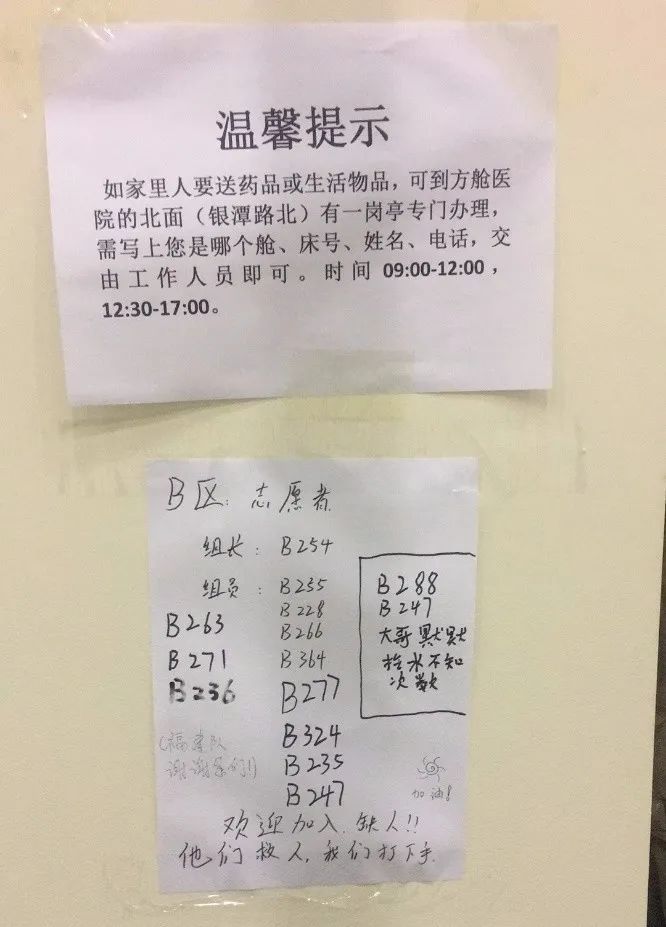 温馨提示
如家里人要送药品或生活物品，可到方舱医
院的北面（银潭路北）有一岗亭专门办理，
需写上您是哪个舱、床号、姓名、电话，交
由工作人员即可。时间 09:00-12:00，
12:30-17:00。
B区：志愿者
组长：B254
组员：B255
B228
B263 B266
B271 B364
B236 B277
B324
B235
B247
B288
B247
大哥默默
抬水不知
次数
（福建队
谢谢你们！）
加油！
欢迎加入 缺人！！
他们救人，我们打下手.